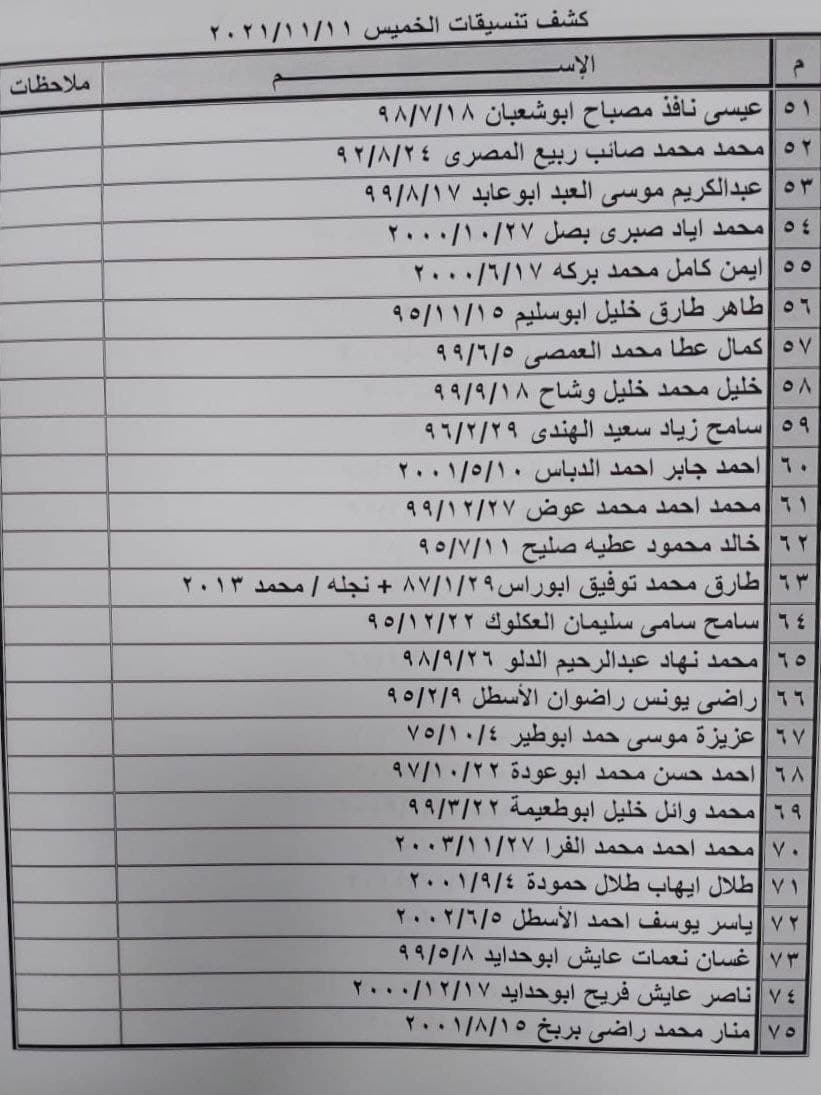 كشف تنسيقات الخميس ٢٠٢١/١١/١١
م الإســــــــــم ملاحظات
٥١ عيسى نافذ مصباح ابوشعبان ٩٨/٧/١٨
٥٢ محمد محمد صائب ربيع المصرى ٩٢/٨/٢٤
٥٣ عبدالكريم موسى العبد ابوعابد ٩٩/٨/١٧
٥٤ محمد اياد صبرى بصل ٢٠٠٠/١٠/٢٧
٥٥ ايمن كامل محمد بركه ٢٠٠٠/٦/١٧
٥٦ طاهر طارق خليل ابوسليم ٩٥/١١/١٥
٥٧ كمال عطا محمد العمصى ٩٩/٦/٥
٥٨ خليل محمد خليل وشاح ٩٩/٩/١٨
٥٩ سامح زياد سعيد الهندى ٩٦/٢/٢٩
٦٠ احمد جابر احمد الدباس ٢٠٠١/٥/١٠
٦١ محمد احمد محمد عوض ٩٩/١٢/٢٧
٦٢ خالد محمود عطيه صليح ٩٥/٧/١١
٦٣ طارق محمد توفيق ابوراس٨٧/١/٢٩ + نجله / محمد ٢٠١٣
٦٤ سامح سامى سليمان العكلوك ٩٥/١٢/٢٢
٦٥ محمد نهاد عبدالرحيم الدلو ٩٨/٩/٢٦
٦٦ راضى يونس راضوان الأسطل ٩٥/٢/٩
٦٧ عزيزة موسى حمد ابوطير ٧٥/١٠/٤
٦٨ احمد حسن محمد ابوعودة ٩٧/١٠/٢٢
٦٩ محمد وائل خليل ابوطعيمة ٩٩/٣/٢٢
٧٠ محمد احمد محمد الفرا ٢٠٠٣/١١/٢٧
٧١ طلال ايهاب طلال حمودة ٢٠٠١/٩/٤
٧٢ ياسر يوسف احمد الأسطل ٢٠٠٢/٦/٥
٧٣ غسان نعمات عايش ابوحدايد ٩٩/٥/٨
٧٤ ناصر عايش فريح ابوحدايد ٢٠٠٠/١٢/١٧
٧٥ منار محمد راضى بربخ ٢٠٠١/٨/١٥